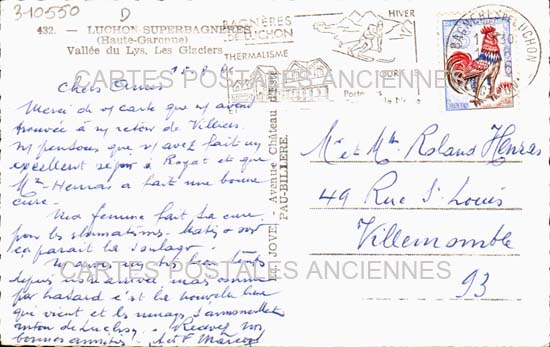 3-10550
D
432. — LUCHON-SUPERBAGNÈRES
(Haute-Garonne)
Vallée du Lys. Les Glaciers
BAGNÈRES
DE LUCHON
THERMALISME
HIVER
CARTES POSTALES ANCIENNES
Chers Amis
Merci de vs carte que ns avons
trouvée à ns retour de Villers
ns pensons que vs avez fait un
excellent séjour à Royat et que
Mme Henras a fait une bonne
cure.
Ma femme fait la cure
pour les rhumatismes
ça parait la soulager.
depuis
par hasard c'est la nouvelle lune
qui vient et les nuages s'amoncellent
autour de Luchon. Recevez nos
bonnes amitiés.
Ed. JOVÉ, - Avenue Château d'Este
PAU-BILLÈRE.
BAGNÈRES DE LUCHON
Mr et Mme Roland Henras
49 Rue St Louis
Villemomble
93
CARTES POSTALES ANCIENNES